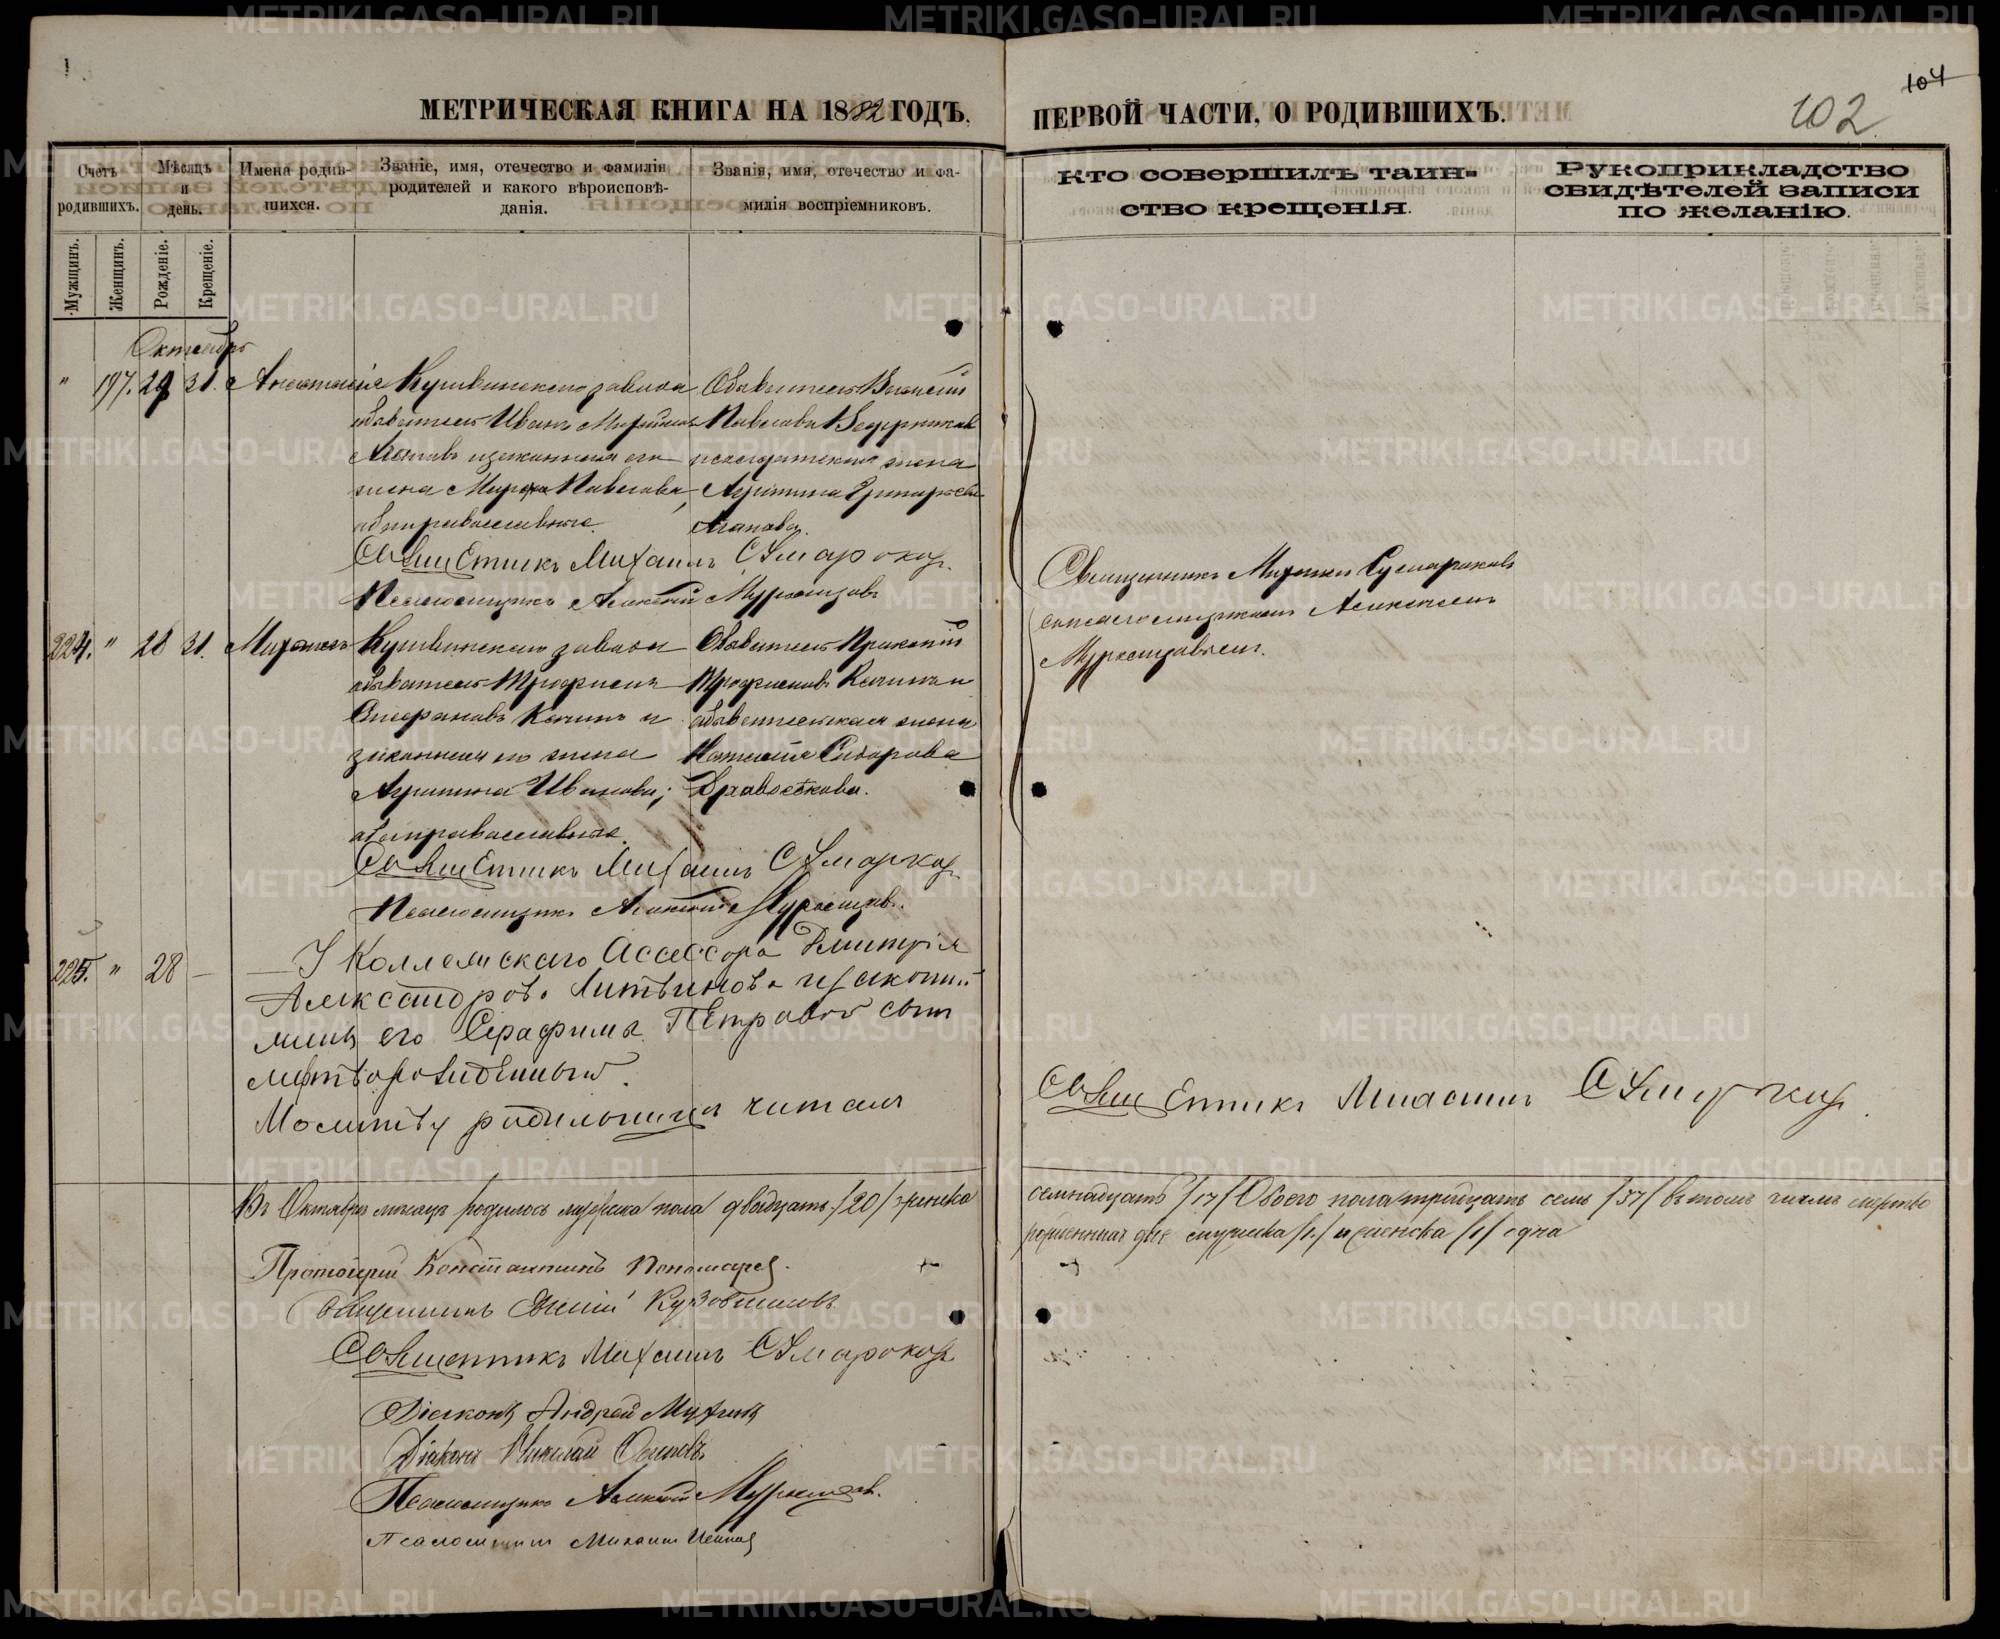 104
102
МЕТРИЧЕСКАЯ КНИГА НА 1882 ГОДЪ,
ПЕРВОЙ ЧАСТИ, О РОДИВШИХЪ.
Счетъ родившихъ.
Мѣсяцъ и день.
Имена родившихся.
Званіе, имя, отечество и фамилія родителей и какого вѣроисповѣданія.
Званія, имя, отечество и фамилія воспріемниковъ.
Кто совершилъ таинство крещенія.
Рукоприкладство свидѣтелей записи по желанію.
Мужчинъ.
Женщинъ.
Рожденіе.
Крещеніе.
Октябрь
" 197. 29 31. Анастасія
Кушвинскаго завода
обыватель Иванъ
законная его
жена Марфа Павлова,
оба православные.
Обыватель Василій
Павловъ
жена
Агапова.
Священникъ Михаилъ Сумароковъ
Псаломщикъ Алексій
224. " 28 31. Михаилъ
Кушвинскаго завода
обыватель Трофимъ
Стефановъ Качинъ и
законная его жена
Иванова;
оба православные.
Обыватель Прокопій
Трофимовъ Качинъ и
жена
Наталія Сидорова
Дравосѣкова.
Священникъ Михаилъ Сумароковъ
Псаломщикъ Алексій
Священникъ Михаилъ Сумароковъ
съ псаломщикомъ Алексіемъ
225. " 28 —
— У Коллежскаго Ассессора Дмитрія
Александрова Литвинова и законной
жены его Серафимы Петровой сынъ
мертворожденный.
Молитву родильницы читалъ
Священникъ Михаилъ Сумароковъ
Въ Октябрѣ мѣсяцѣ родилось мужеска пола двадцать /20/ женска
семнадцать /17/ Обоего пола тридцать семь /37/ въ томъ числѣ мертво
рожденныхъ два мужеска /1/ и женска /1/ одна
Протоіерей Константинъ Пономаревъ.
Священникъ Евгеній Кузовниковъ
Священникъ Михаилъ Сумароковъ
Діаконъ Андрей Мухинъ
Діаконъ Николай Осиповъ
Псаломщикъ Алексій
Псаломщикъ Михаилъ
METRIKI.GASO-URAL.RU